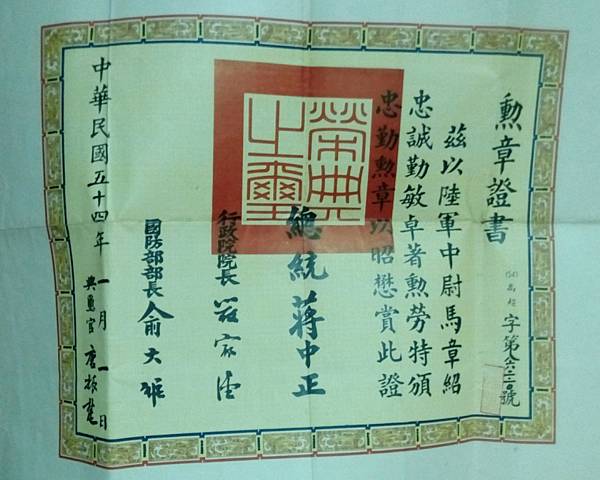 勲章證書
字第 號
茲以陸軍中尉馬章紹
忠誠勤敏卓著勲勞特頒
忠勤勲章以昭懋賞此證
榮典之璽
總統 蔣中正
行政院院長 嚴家淦
國防部部長 俞大維
中華民國五十四年 一月 一日
典璽官